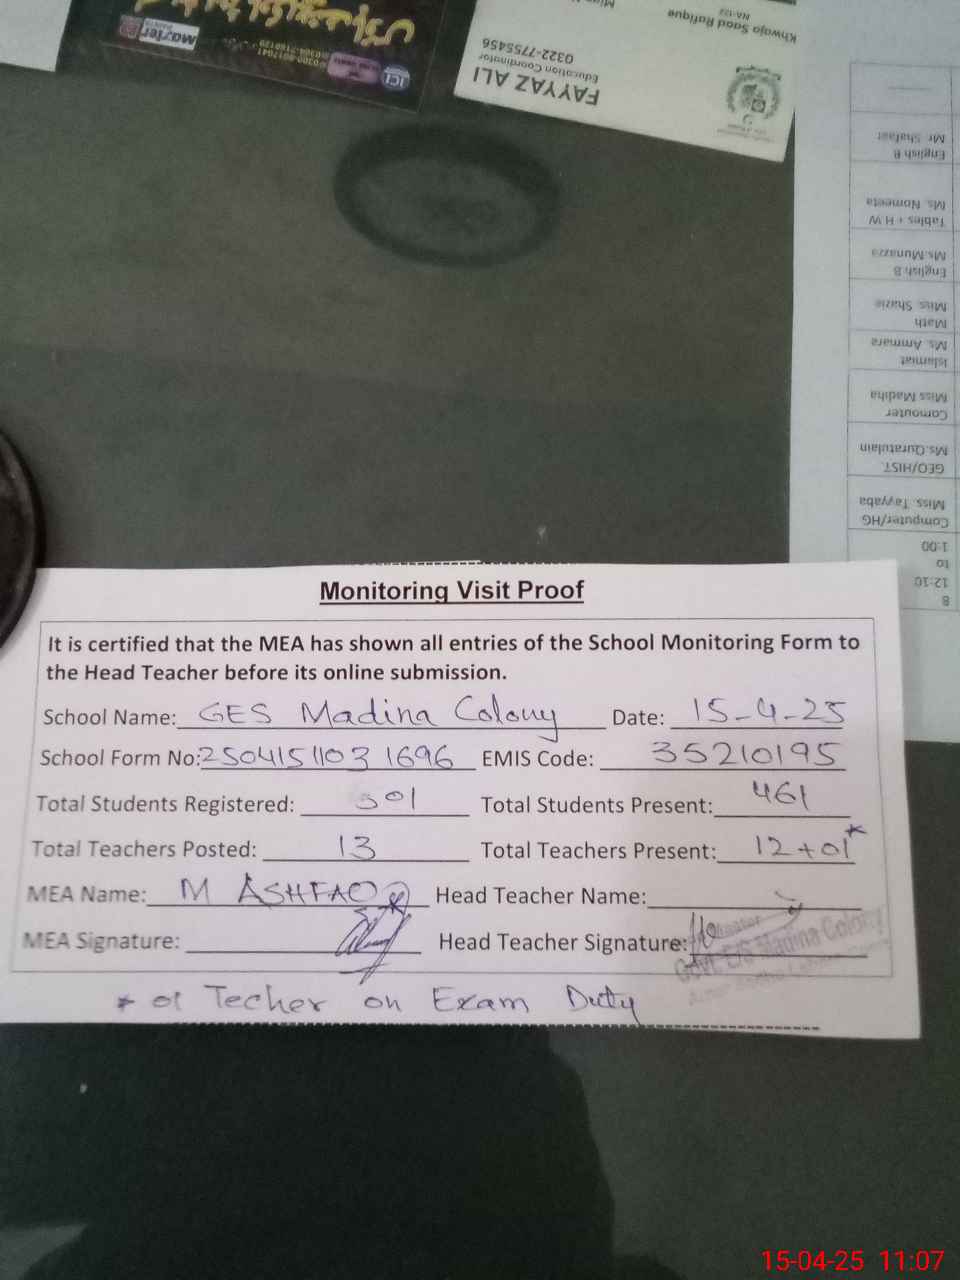 Khwaja Saad Rafique
NA-122
FAYYAZ ALI
Education Coordinator
0322-7755456
ICI
Maxler
8
12:10
to
1:00
Computer/HG
Miss. Tayyaba
GEO/HIST.
Ms.Quratulain
Comouter
Miss Madiha
Islamiat
Ms. Ammara
Math
Miss. Shazie
English B
Ms.Munazza
Tables + H.W
Ms. Nomeeta
English B
Mr. Shafaat
Monitoring Visit Proof
It is certified that the MEA has shown all entries of the School Monitoring Form to
the Head Teacher before its online submission.
School Name: GES Madina Colony Date: 15-4-25
School Form No: 2504151103 1696 EMIS Code: 35210195
Total Students Registered: 501 Total Students Present: 461
Total Teachers Posted: 13 Total Teachers Present: 12+01*
MEA Name: M ASHFAQ Head Teacher Name:
MEA Signature: Head Teacher Signature:
Govt. E/S Madina Colony
* 01 Techer on Exam Duty
15-04-25 11:07